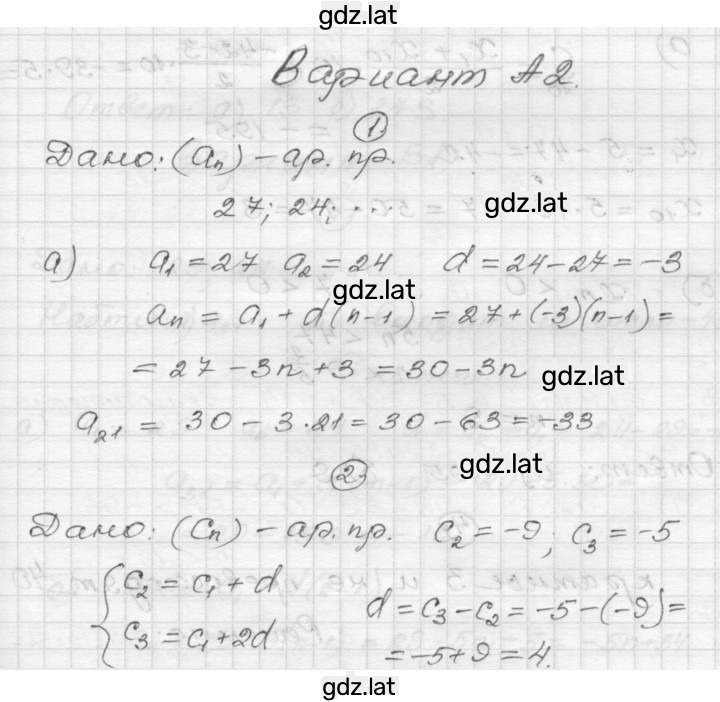 gdz.lat
Вариант А2.
1
Дано: (aₙ) – ар. пр.
27; 24; ...
gdz.lat
а) a₁ = 27 a₂ = 24 d = 24 – 27 = –3
gdz.lat
aₙ = a₁ + d(n–1) = 27 + (–3)(n–1) =
= 27 – 3n + 3 = 30 – 3n
gdz.lat
a₂₁ = 30 – 3·21 = 30 – 63 = –33
gdz.lat
2
Дано: (cₙ) – ар. пр. c₂ = –9; c₃ = –5
{ c₂ = c₁ + d
c₃ = c₁ + 2d
d = c₃ – c₂ = –5 – (–9) =
= –5 + 9 = 4.
gdz.lat